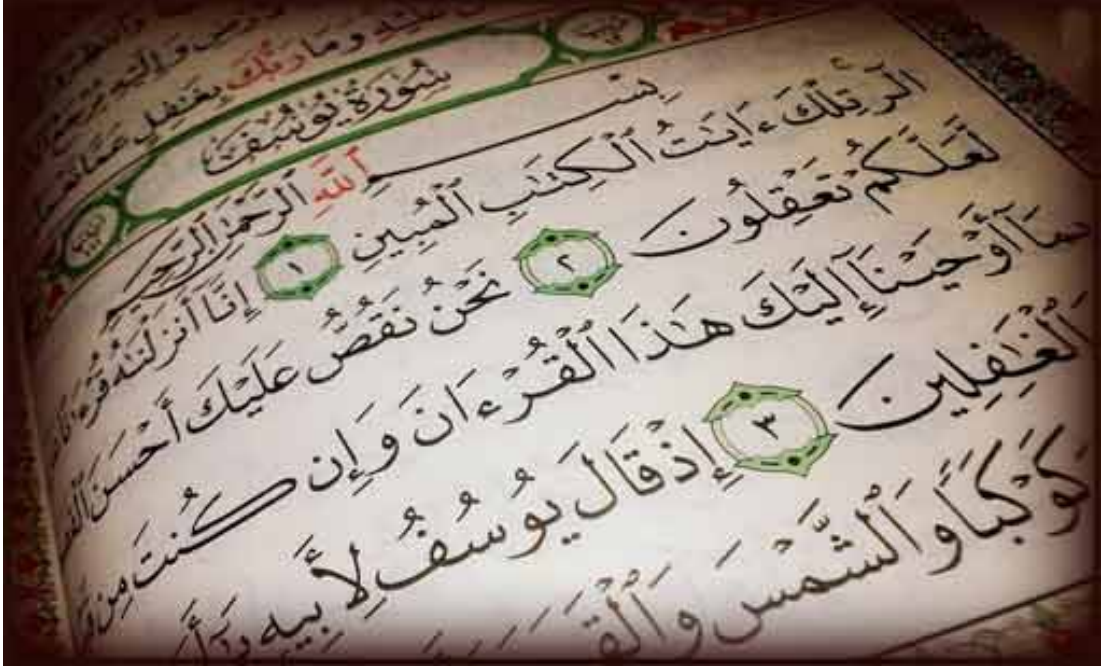 وَإِلَيْهِ يُرْجَعُ
وَمَا رَبُّكَ بِغَٰفِلٍ عَمَّا
سُورَةُ يُوسُفَ
بِسْمِ ٱللَّهِ ٱلرَّحْمَٰنِ ٱلرَّحِيمِ
الٓر تِلْكَ ءَايَٰتُ ٱلْكِتَٰبِ ٱلْمُبِينِ ١ إِنَّآ أَنزَلْنَٰهُ قُرْءَٰنًا
لَّعَلَّكُمْ تَعْقِلُونَ ٢ نَحْنُ نَقُصُّ عَلَيْكَ أَحْسَنَ
بِمَآ أَوْحَيْنَآ إِلَيْكَ هَٰذَا ٱلْقُرْءَانَ وَإِن كُنتَ مِن
ٱلْغَٰفِلِينَ ٣ إِذْ قَالَ يُوسُفُ لِأَبِيهِ
كَوْكَبًا وَٱلشَّمْسَ وَٱلْقَمَرَ